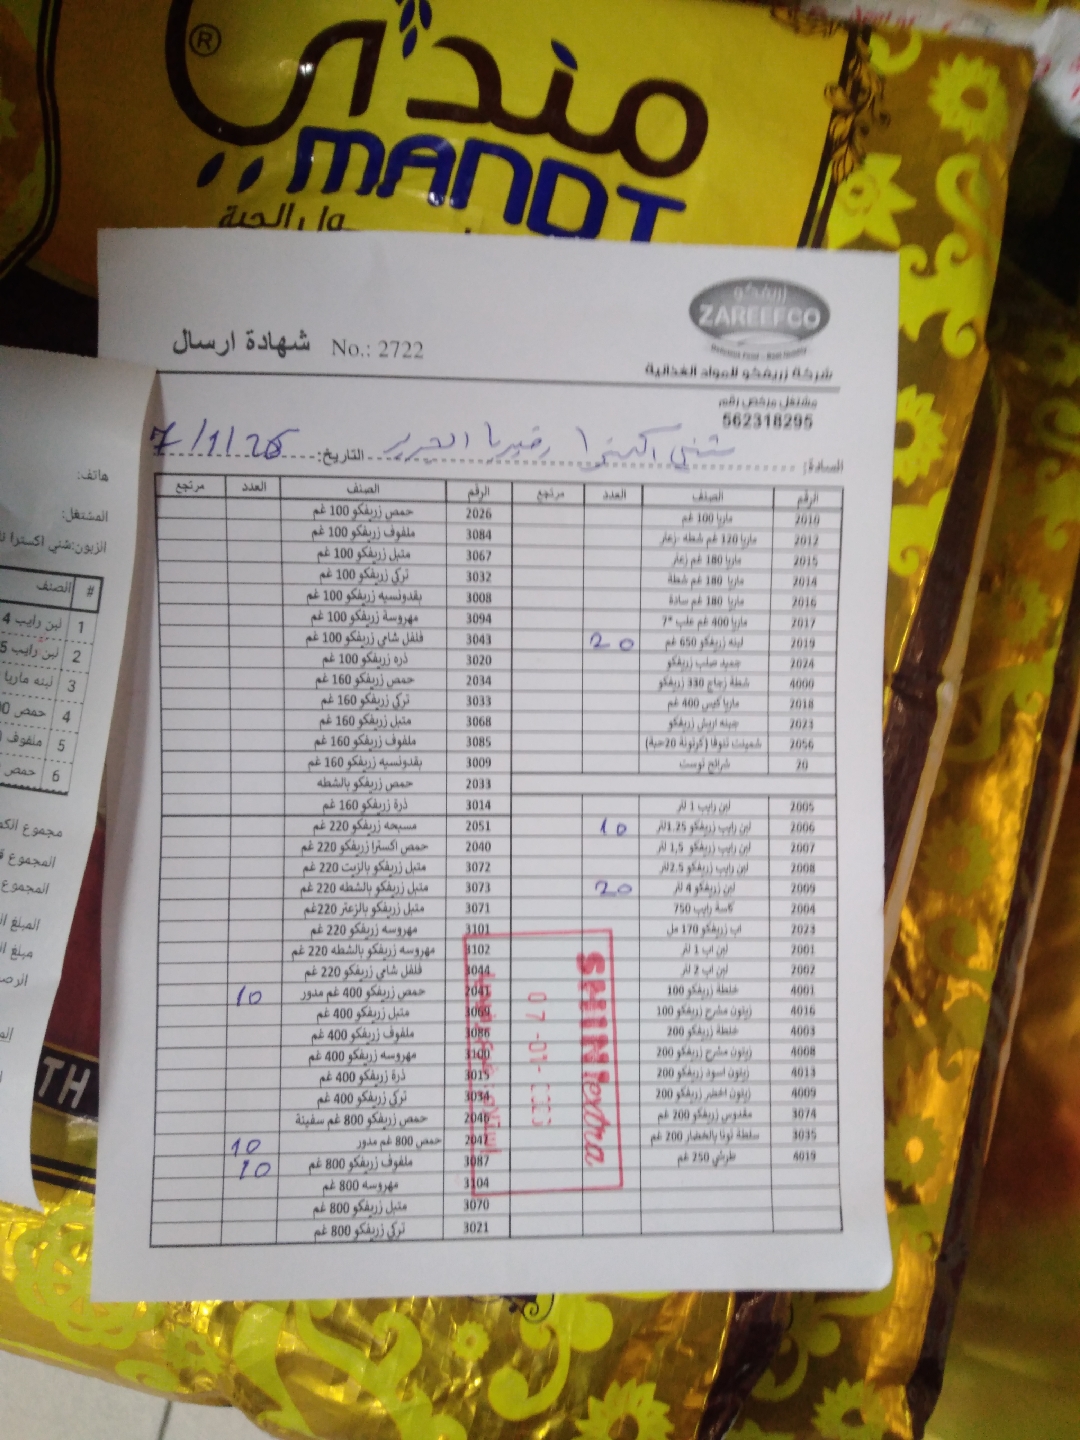 مندي
®
MANDI
ول الحبة
زريفكو
ZAREEFCO
شهادة ارسال No.: 2722
شركة زريفكو للمواد الغذائية
مشتغل مرخص رقم
562318295
السادة: شني اكسترا التاريخ: 7/1/26
الرقم الصنف العدد مرتجع الرقم الصنف العدد مرتجع
2010 ماريا 100 غم 2026 حمص زريفكو 100 غم
2012 ماريا 120 غم شطة -زعتر 3084 ملفوف زريفكو 100 غم
2015 ماريا 180 غم زعتر 3067 متبل زريفكو 100 غم
2014 ماريا 180 غم شطة 3032 تركي زريفكو 100 غم
2016 ماريا 180 غم سادة 3008 بقدونسيه زريفكو 100 غم
2017 ماريا 400 غم علب 7* 3094 مهروسة زريفكو 100 غم
2019 لبنه زريفكو 650 غم 20 3043 فلفل شامي زريفكو 100 غم
2024 جميد صلب زريفكو 3020 ذره زريفكو 100 غم
4000 شطة زجاج 330 زريفكو 2034 حمص زريفكو 160 غم
2018 ماريا كيس 400 غم 3033 تركي زريفكو 160 غم
2023 جبنه اريش زريفكو 3068 متبل زريفكو 160 غم
2056 شمينت تنوفا (كرتونة 20حبة) 3085 ملفوف زريفكو 160 غم
20 شرائح توست 3009 بقدونسيه زريفكو 160 غم
2033 حمص زريفكو بالشطه
2005 لبن رايب 1 لتر 3014 ذرة زريفكو 160 غم
2006 لبن رايب زريفكو 1.25لتر 10 2051 مسبحه زريفكو 220 غم
2007 لبن رايب زريفكو 1,5 لتر 2040 حمص اكسترا زريفكو 220 غم
2008 لبن رايب زريفكو 2.5لتر 3072 متبل زريفكو بالزيت 220 غم
2009 لبن زريفكو 4 لتر 20 3073 متبل زريفكو بالشطه 220 غم
2004 كاسة رايب 750 3071 متبل زريفكو بالزعتر 220غم
2023 اب زريفكو 170 مل 3101 مهروسه زريفكو 220 غم
2001 لبن اب 1 لتر 3102 مهروسه زريفكو بالشطه 220 غم
2002 لبن اب 2 لتر 3044 فلفل شامي زريفكو 220 غم
4001 خلطة زريفكو 100 2041 حمص زريفكو 400 غم مدور 10
4016 زيتون مشرح زريفكو 100 3069 متبل زريفكو 400 غم
4003 خلطة زريفكو 200 3086 ملفوف زريفكو 400 غم
4008 زيتون مشرح زريفكو 200 3100 مهروسه زريفكو 400 غم
4013 زيتون اسود زريفكو 200 3015 ذرة زريفكو 400 غم
4009 زيتون اخضر زريفكو 200 3034 تركي زريفكو 400 غم
3074 مقدوس زريفكو 200 غم 2046 حمص زريفكو 800 غم سفينة
3035 سلطة تونا بالخضار 200 غم 2047 حمص 800 غم مدور 10
4019 طرشي 250 غم 3087 ملفوف زريفكو 800 غم 10
3104 مهروسه 800 غم
3070 متبل زريفكو 800 غم
3021 تركي زريفكو 800 غم
SHINI extra
هاتف:
المشتغل:
الزبون:شني اكسترا
# الصنف
1 لبن رايب 4
2 لبن رايب
3 لبنه ماريا
4 حمص
5 ملفوف
6 حمص
مجموع
المجموع
المجموع
المبلغ
مبلغ
TH